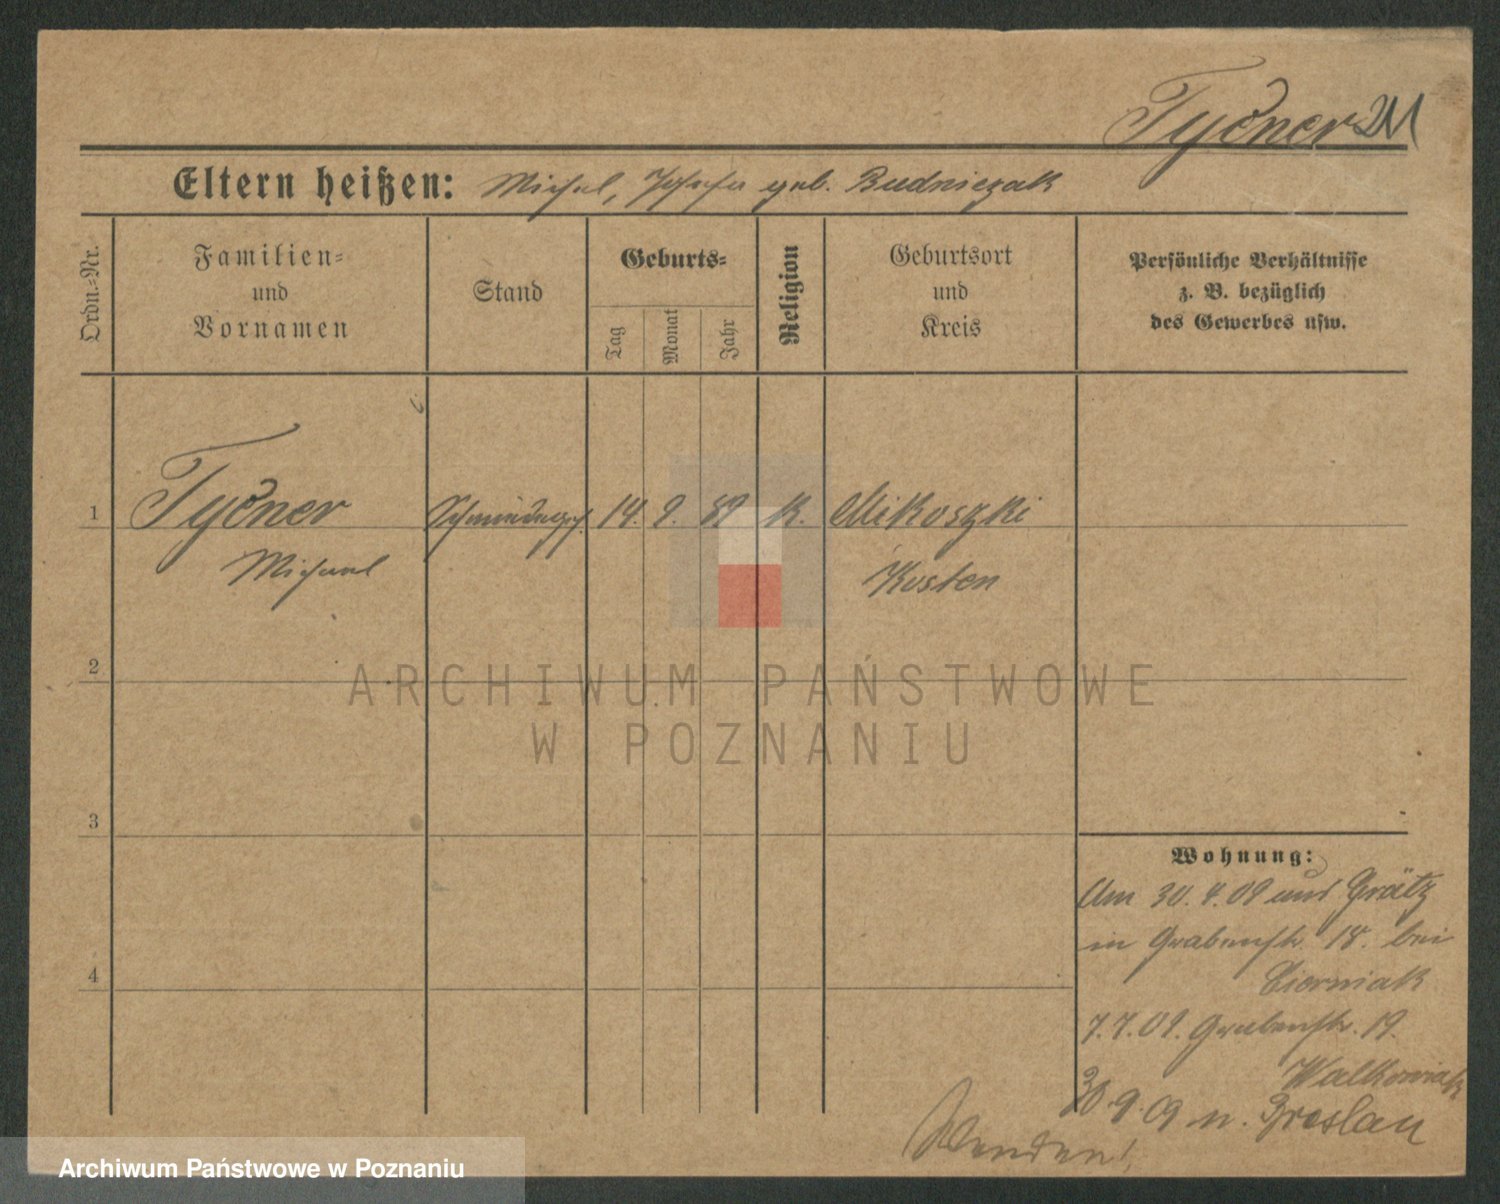 Tydner
Eltern heißen: Michael, Josefa geb. Budniczak
Ordn.-Nr.
Familien-
und
Vornamen
Stand
Geburts-
Tag
Monat
Jahr
Religion
Geburtsort
und
Kreis
Persönliche Verhältnisse
z. B. bezüglich
des Gewerbes usw.
1 Tydner Schmiedeges. 14. 9. 89 k. Mikoszki
Michael Kosten
2
ARCHIWUM PAŃSTWOWE
W POZNANIU
3
Wohnung:
Am 30.4.09 aus Grätz
in Grabenstr. 18. bei
Cierniak
4
7.7.09. Grabenstr. 19.
Walkowiak
30.9.09 n. Breslau
Wenden!
Archiwum Państwowe w Poznaniu